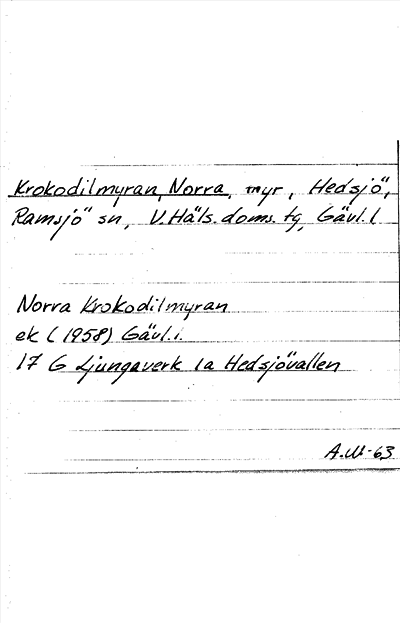 Krokodilmyran, Norra, myr, Hedsjö,
Ramsjö sn, V.Häls.doms.tg, Gävl.l
Norra Krokodilmyran
ek (1958) Gävl.l.
17 G Ljungaverk 1a Hedsjövallen
A.W-63